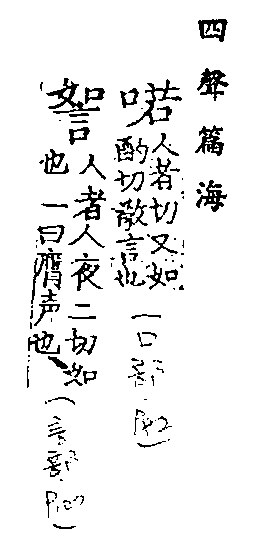 四聲篇海
喏
人者切又如
酌切敬言也
(口部.P42)
人者人夜二切
也一曰膺声也
(言部.